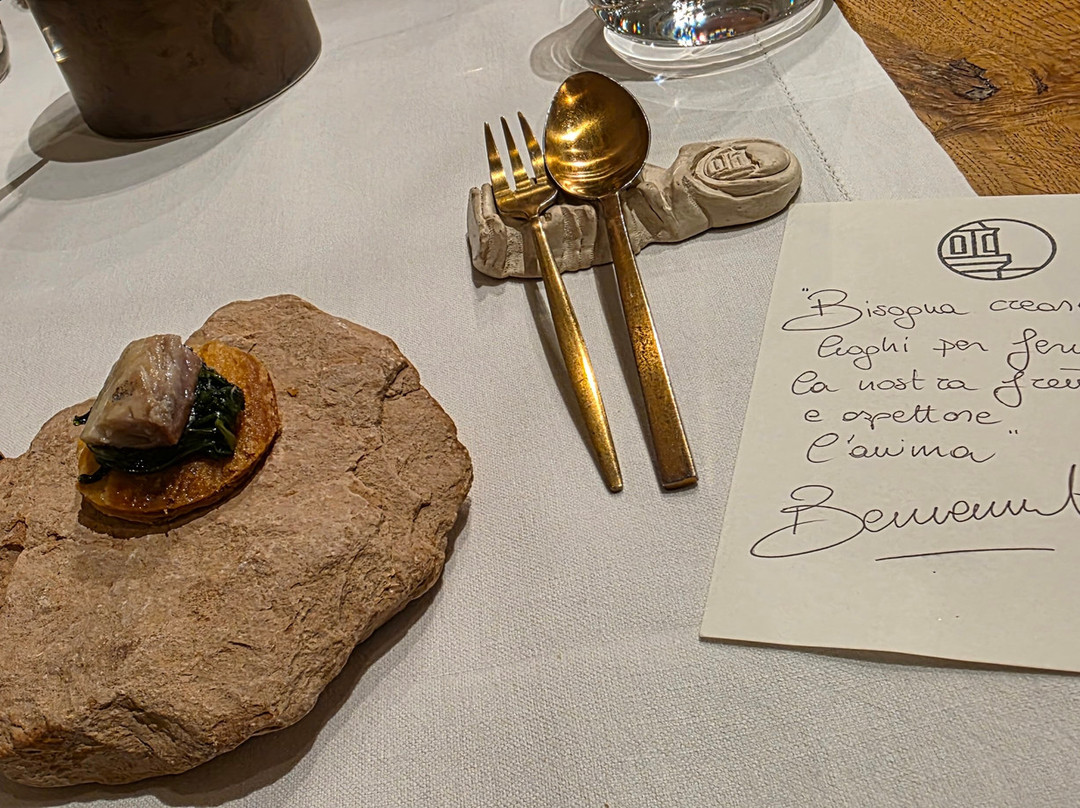 "Bisogna crear
luoghi per fer
la nostra fret
e aspettare
l'anima"
Benvenut